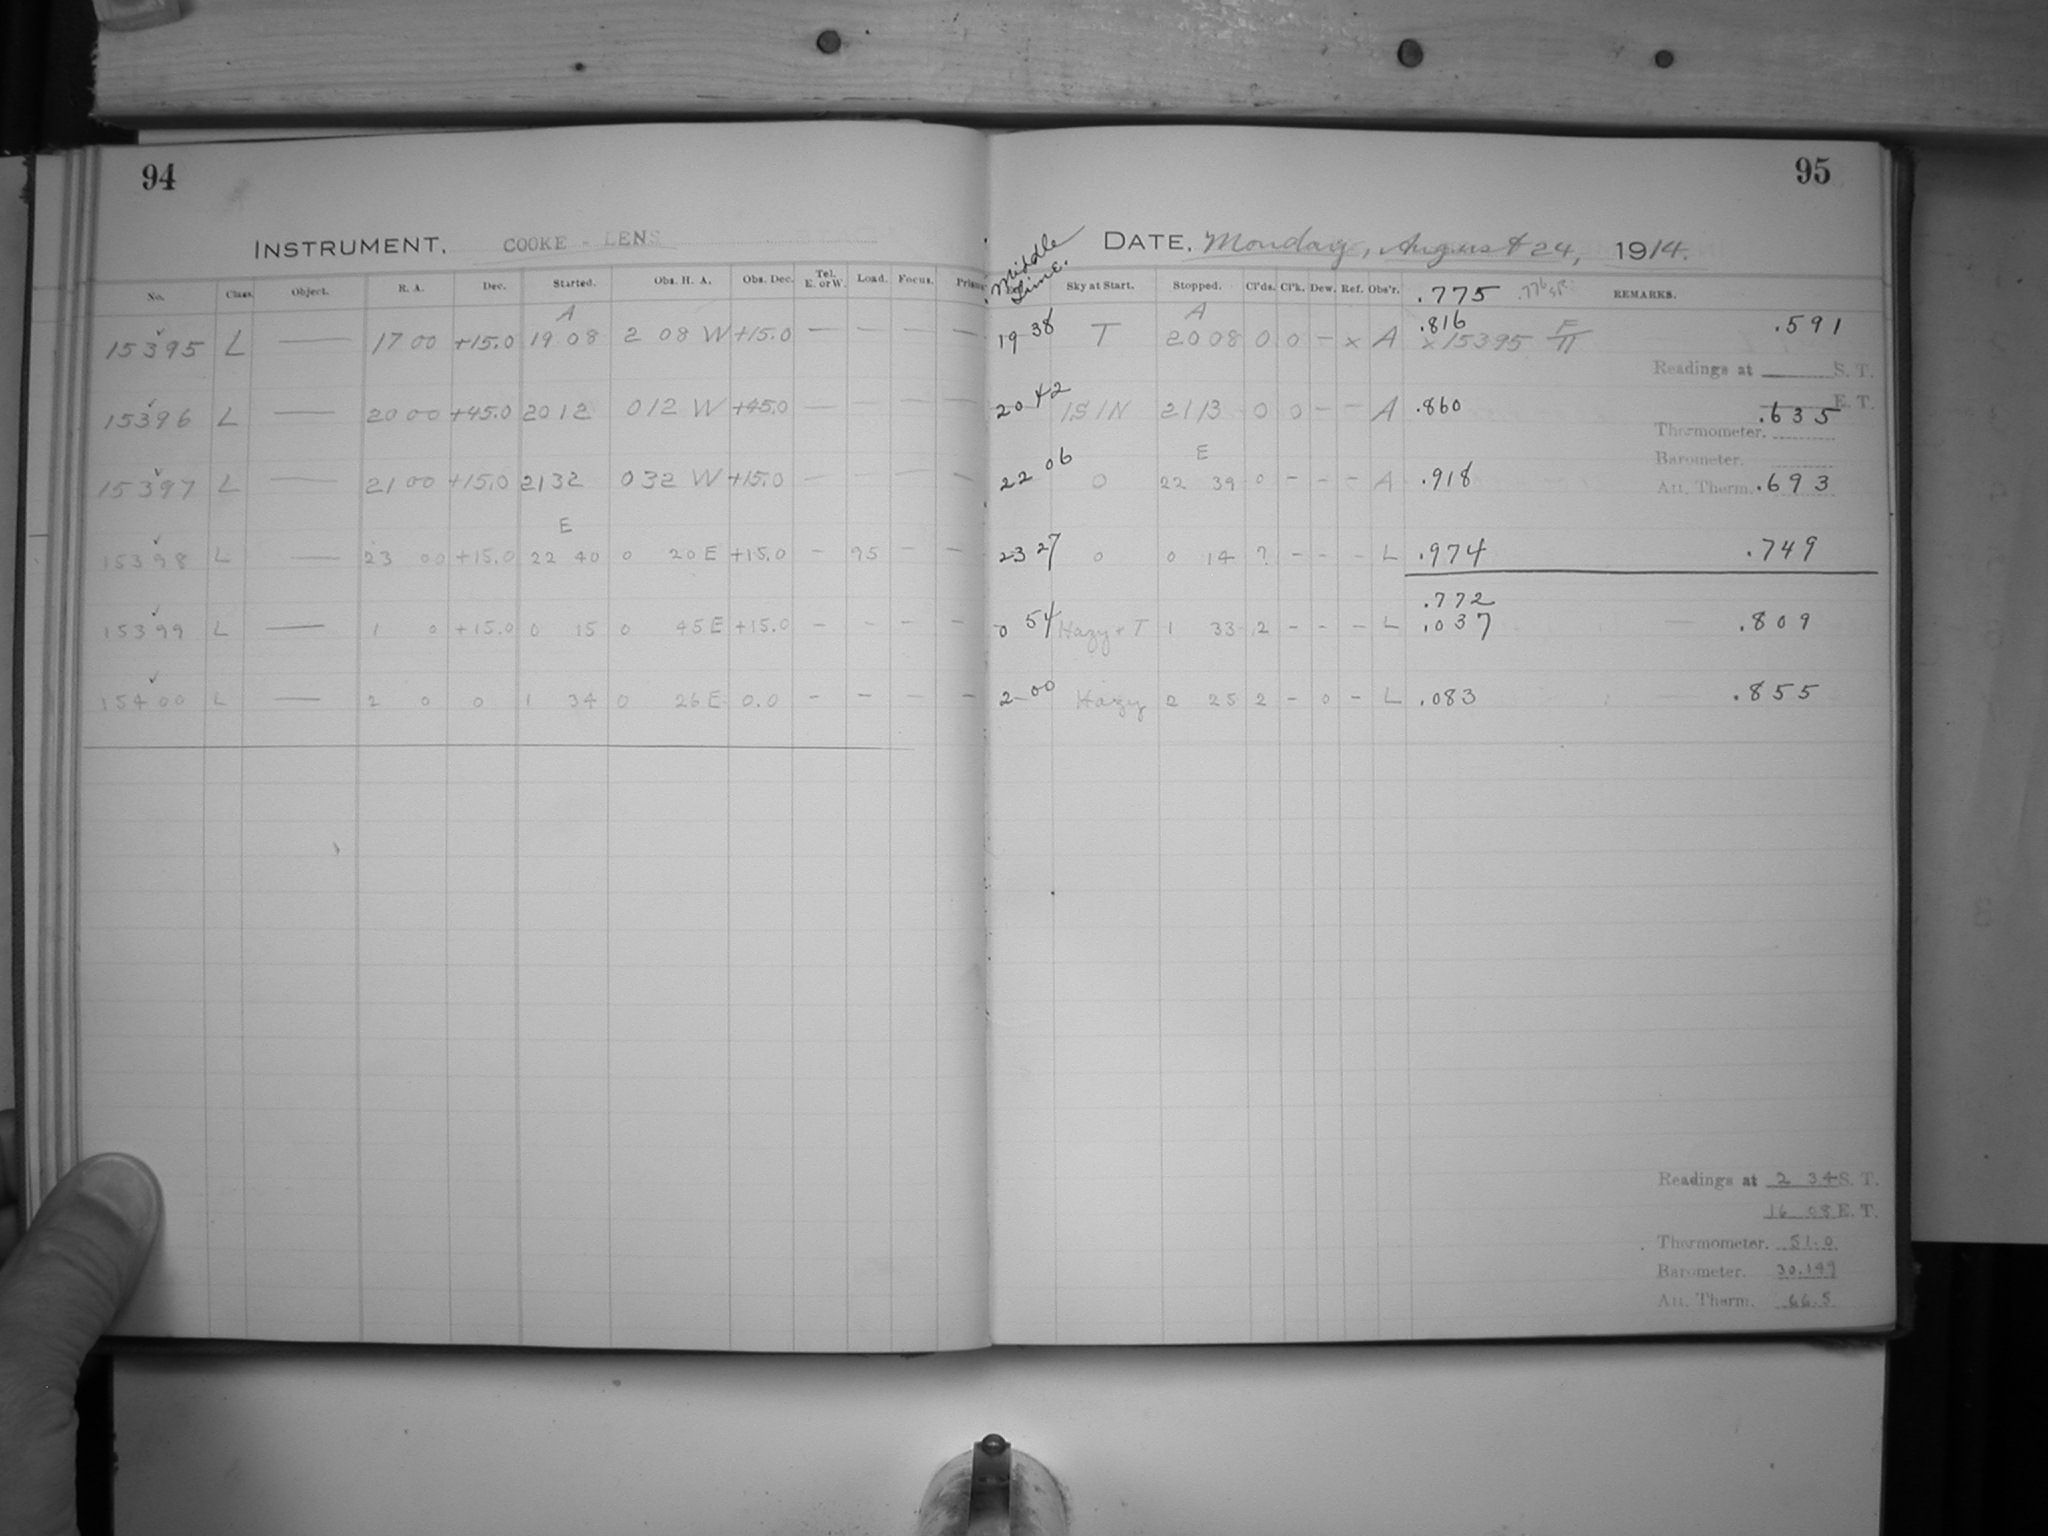 94
INSTRUMENT. COOKE - LENS
No. Class. Object. R. A. Dec. Started. Obs. H. A. Obs. Dec. Tel. E. or W. Load. Focus.
A
15395 L — 17 00 +15.0 19 08 2 08 W +15.0 — — — —
15396 L — 20 00 +45.0 20 12 0 12 W +45.0 — — — —
15397 L — 21 00 +15.0 21 32 0 32 W +15.0 — — — —
E
15398 L — 23 00 +15.0 22 40 0 20 E +15.0 — 95 — —
15399 L — 1 0 +15.0 0 15 0 45 E +15.0 — — — —
15400 L — 2 0 0 1 34 0 26 E 0.0 — — — —
95
Middle Time.
DATE. Monday, August 24, 1914.
Sky at Start. Stopped. Cl'ds. Cl'k. Dew. Ref. Obs'r. .775 REMARKS.
A
.816
19 38 T 20 08 0 0 — x A x 15395 F/π .591
Readings at S. T.
E. T.
20 42 ISIN 21 13 0 0 — — A .860 .635
Thermometer.
Barometer.
E
22 06 0 22 39 0 — — — A .918 Att. Therm. .693
23 27 0 0 14 ? — — — L .974 .749
.772
0 54 Hazy + T 1 33 2 — — — L .037 .809
2 00 Hazy 2 25 2 — 0 — L .083 .855
Readings at 2 34 S. T.
16 08 E. T.
Thermometer. 51.0
Barometer. 30.149
Att. Therm. 66.5